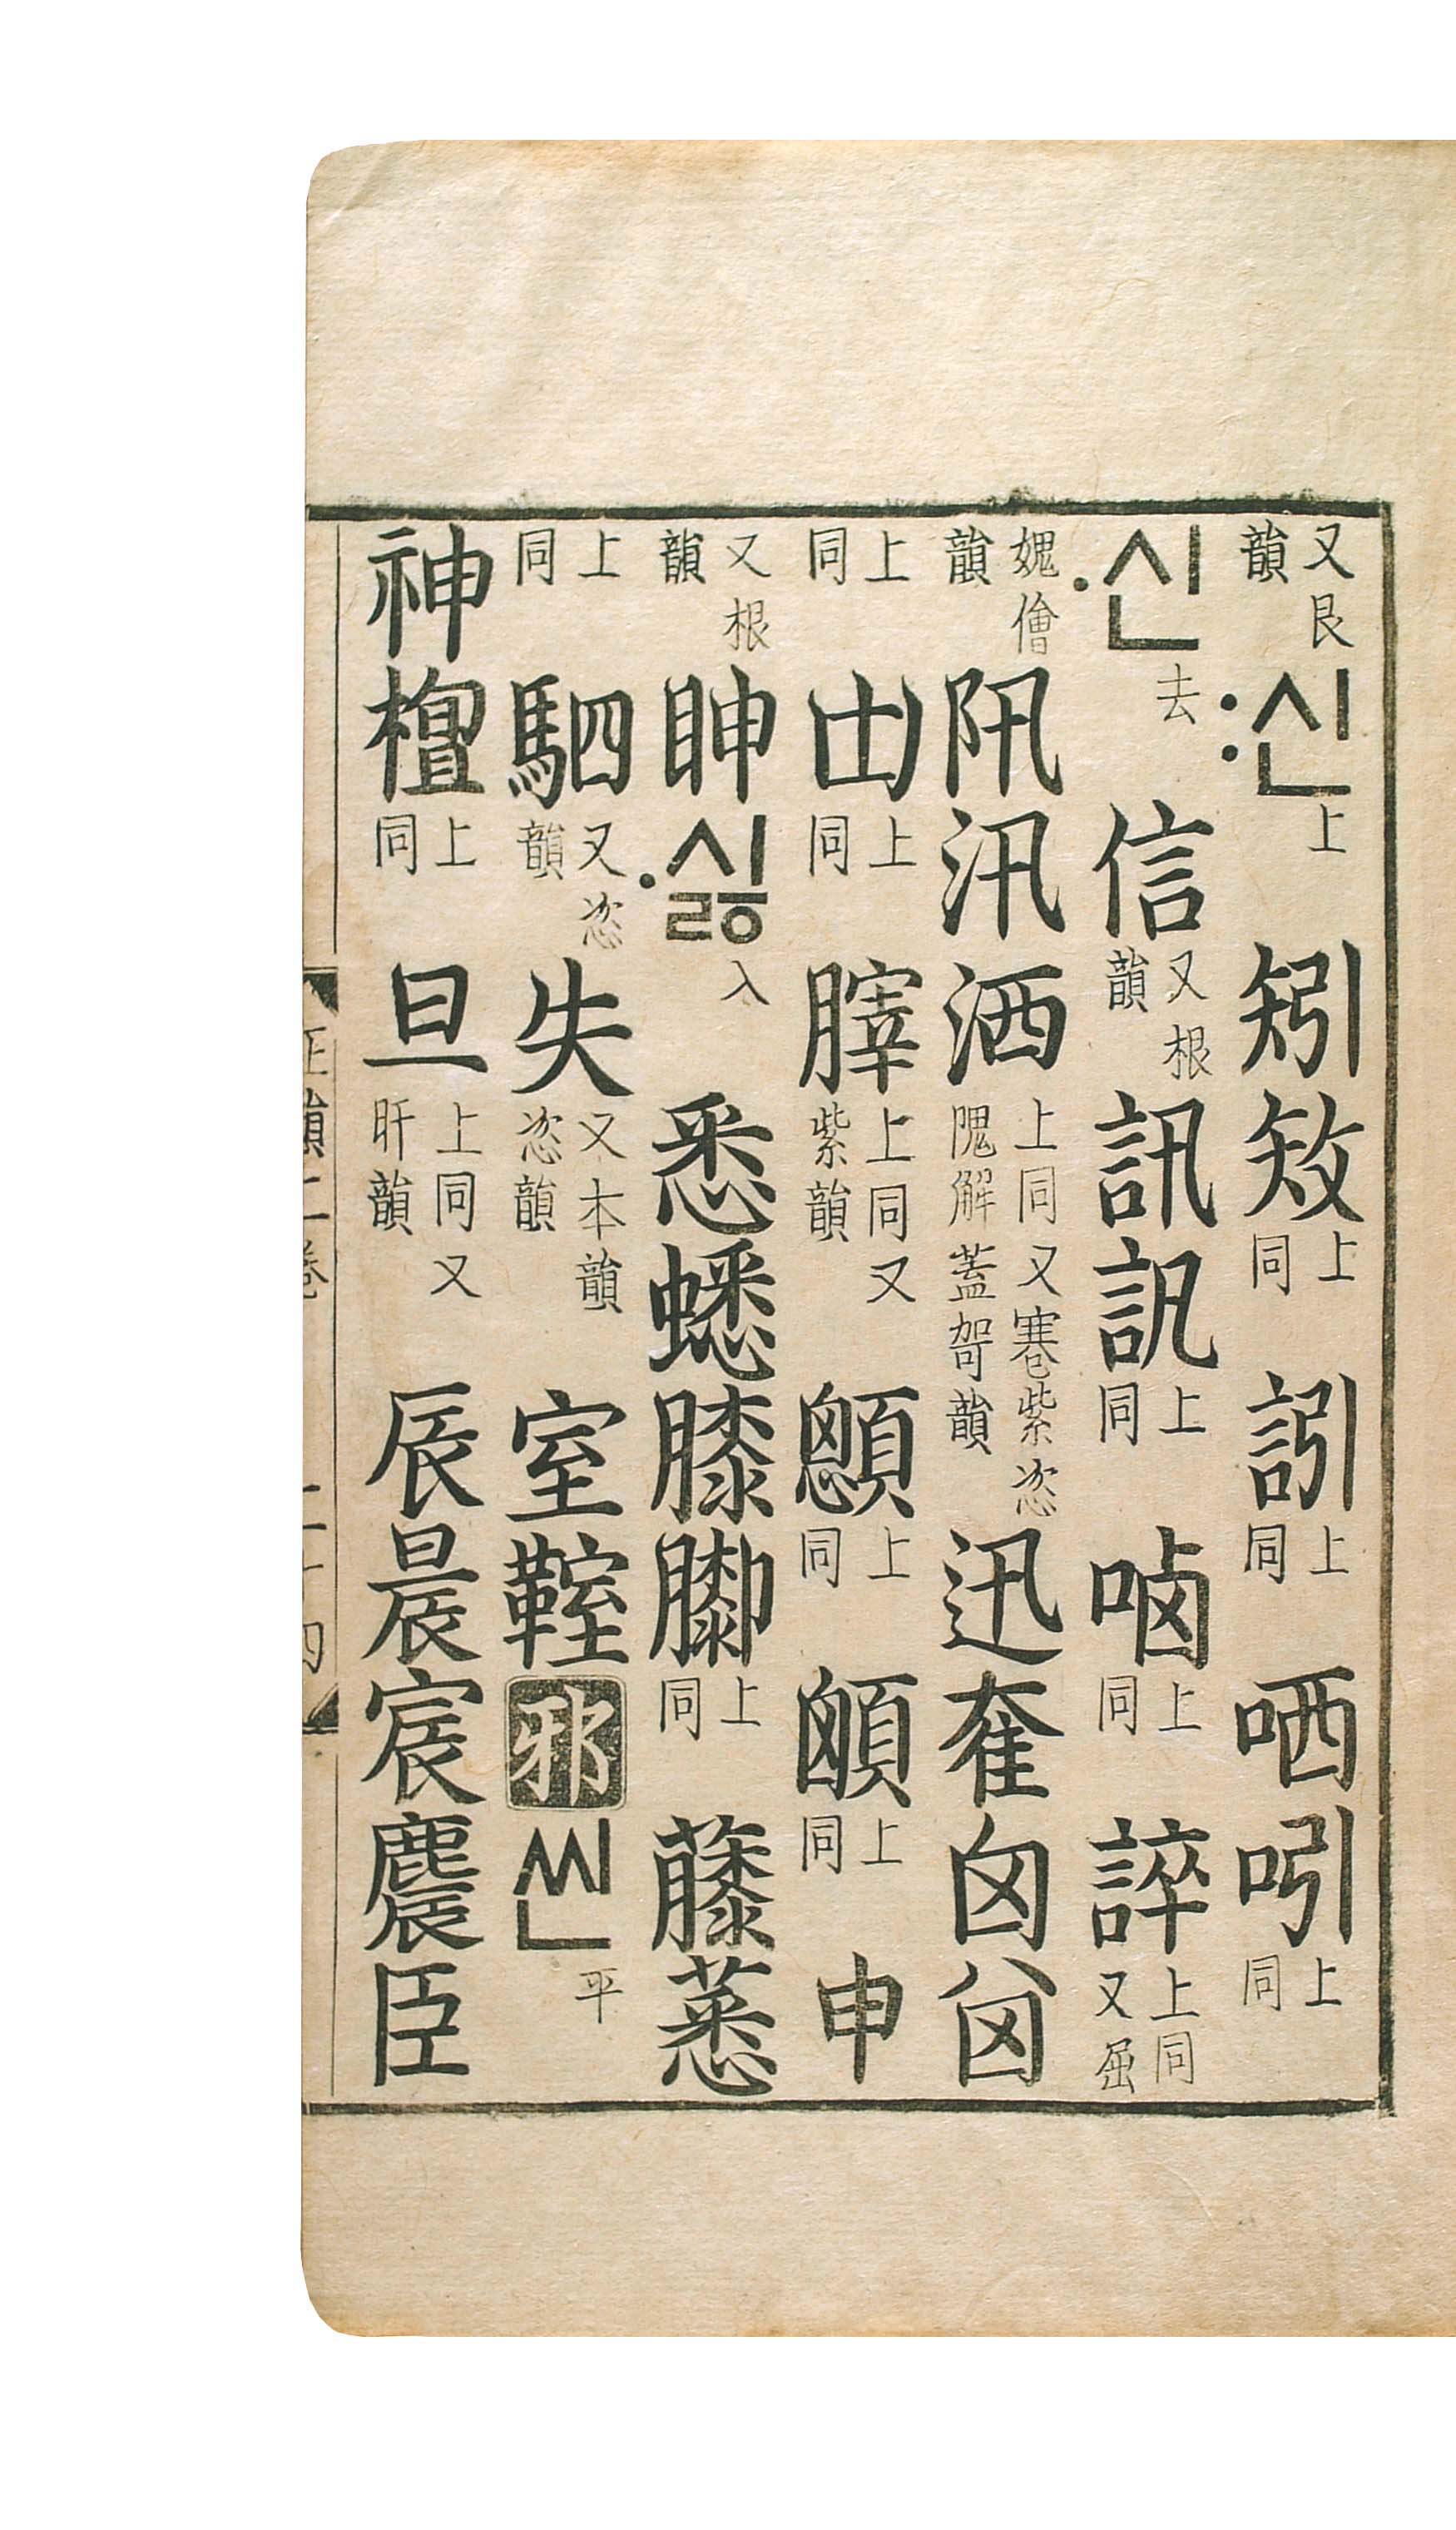 又艮韻〯신上 矧㪨上同 訠上同 哂吲上同
〮신去 信又根韻 訊䚯上同 㖠上同 誶上同又屈
媿儈韻 阠汛洒上同又寋紫恣隗解蓋哿韻 迅奞囟𦥓
上同 甶上同 膟上同又紫韻 顖上同 䪿上同 申
又根韻 眒〮싫入 悉蟋膝厀上同 藤蒠
上同 駟又恣韻 失又本韻恣韻 室鞌邪씬平
神䄠上同 旦上同又旰韻 辰晨宸麎臣
正韻二卷 二十四